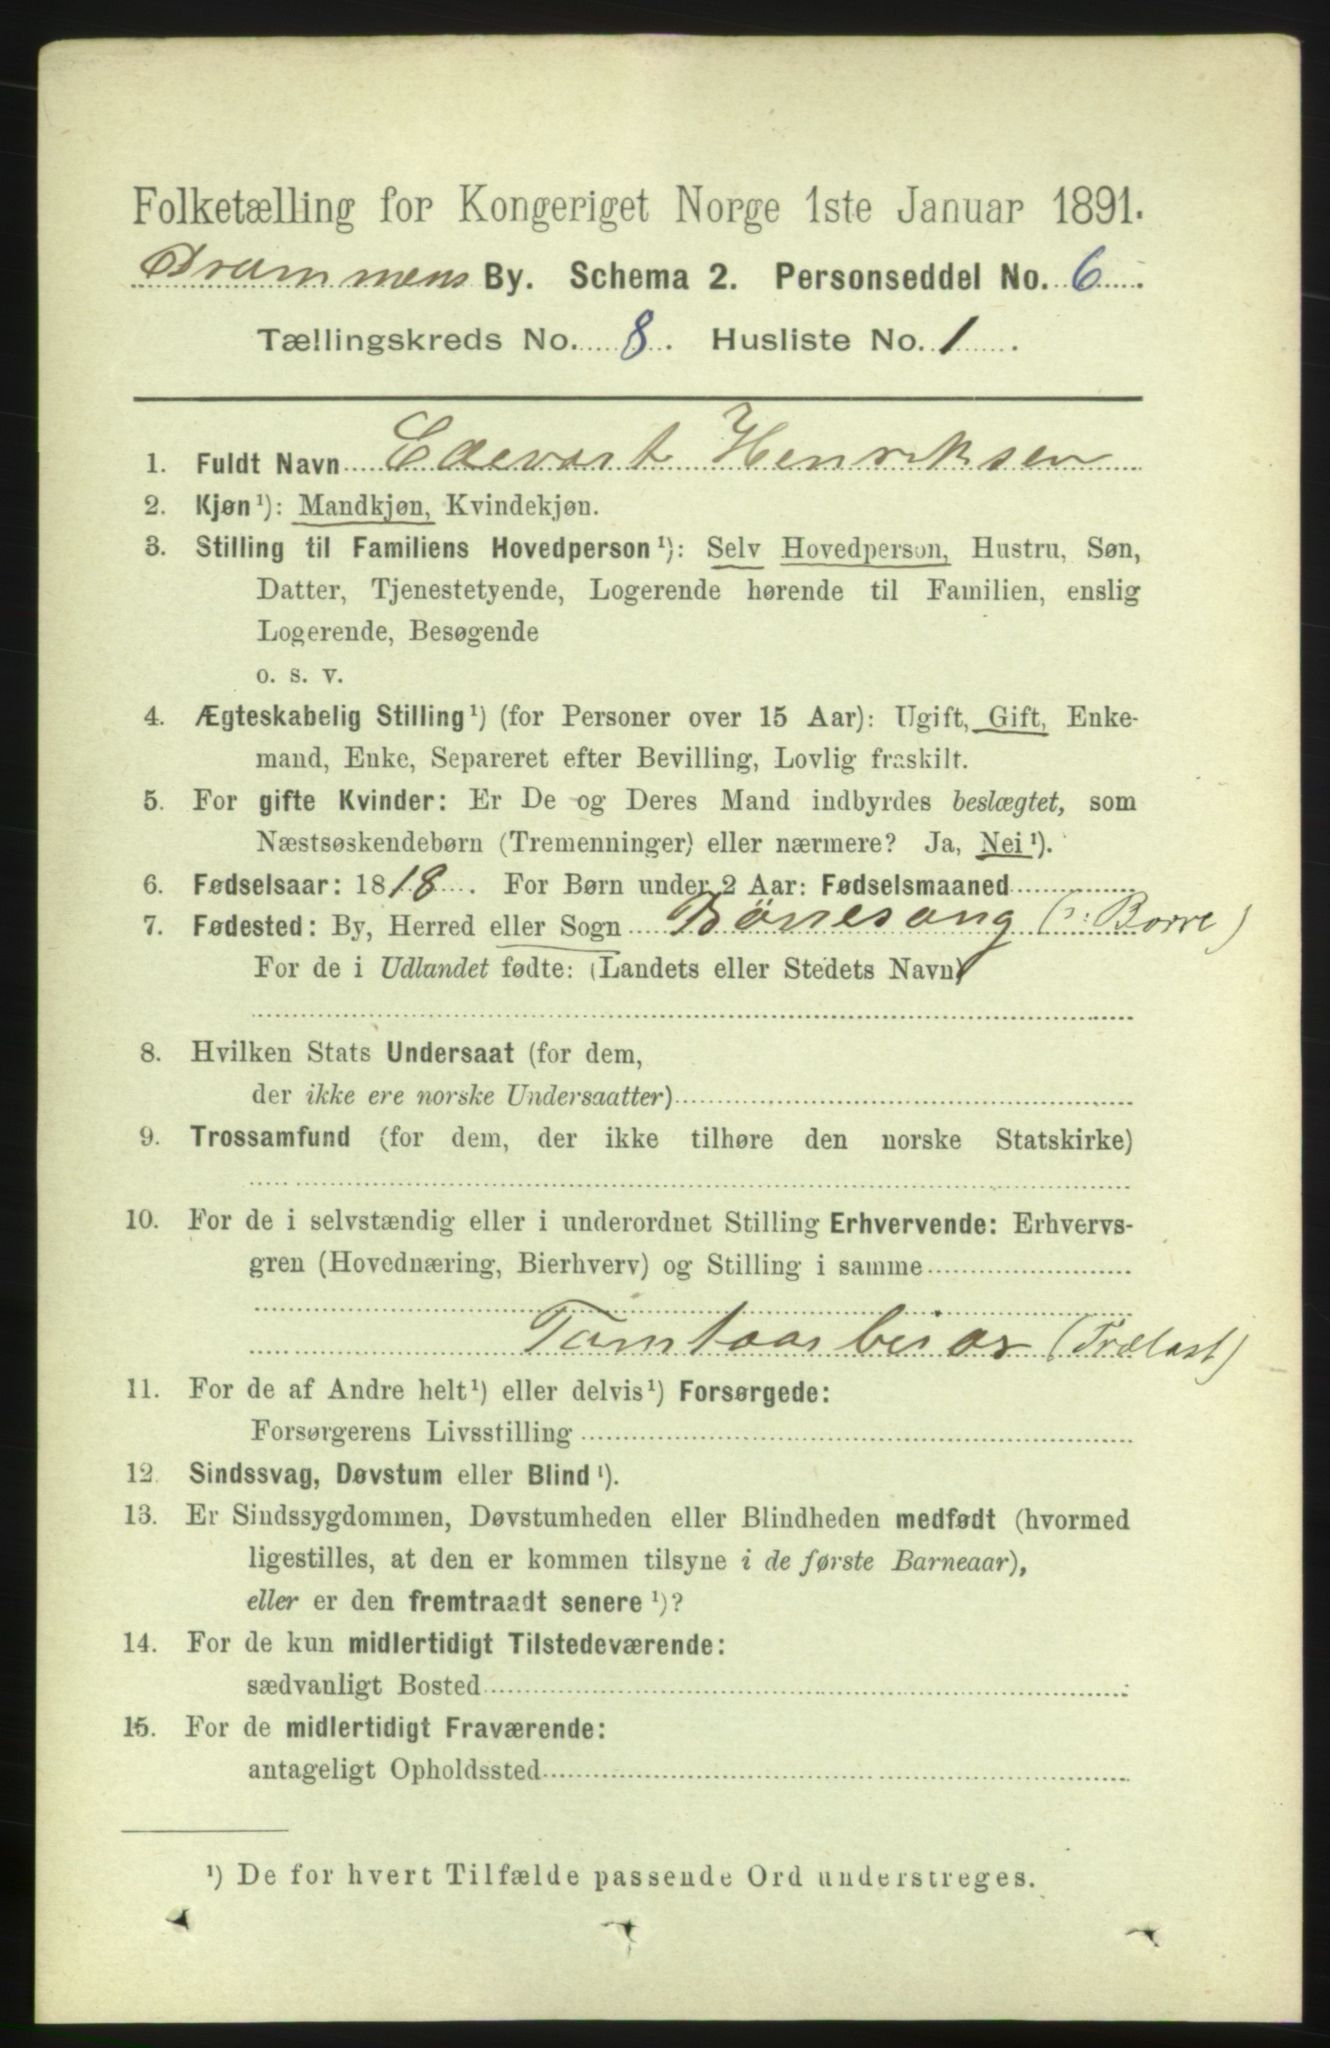 Folketælling for Kongeriget Norge 1ste Januar 1891.
Drammens By. Schema 2. Personseddel No. 6
Tællingskreds No. 8. Husliste No. 1.
1. Fuldt Navn Edevart Henriksen
2. Kjøn ¹): Mandkjøn, Kvindekjøn.
3. Stilling til Familiens Hovedperson ¹): Selv Hovedperson, Hustru, Søn,
Datter, Tjenestetyende, Logerende hørende til Familien, enslig
Logerende, Besøgende
o. s. v.
4. Ægteskabelig Stilling ¹) (for Personer over 15 Aar): Ugift, Gift, Enke-
mand, Enke, Separeret efter Bevilling, Lovlig fraskilt.
5. For gifte Kvinder: Er De og Deres Mand indbyrdes beslægtet, som
Næstsøskendebørn (Tremenninger) eller nærmere? Ja, Nei ¹).
6. Fødselsaar: 1818. For Børn under 2 Aar: Fødselsmaaned
7. Fødested: By, Herred eller Sogn (ɔ: Borre)
For de i Udlandet fødte: (Landets eller Stedets Navn)
8. Hvilken Stats Undersaat (for dem,
der ikke ere norske Undersaatter)
9. Trossamfund (for dem, der ikke tilhøre den norske Statskirke)
10. For de i selvstændig eller i underordnet Stilling Erhvervende: Erhvervs-
gren (Hovednæring, Bierhverv) og Stilling i samme
Tomtaarbeior (Trælast)
11. For de af Andre helt ¹) eller delvis ¹) Forsørgede:
Forsørgerens Livsstilling
12. Sindssvag, Døvstum eller Blind ¹).
13. Er Sindssygdommen, Døvstumheden eller Blindheden medfødt (hvormed
ligestilles, at den er kommen tilsyne i de første Barneaar),
eller er den fremtraadt senere ¹)?
14. For de kun midlertidigt Tilstedeværende:
sædvanligt Bosted
15. For de midlertidigt Fraværende:
antageligt Opholdssted
¹) De for hvert Tilfælde passende Ord understreges.